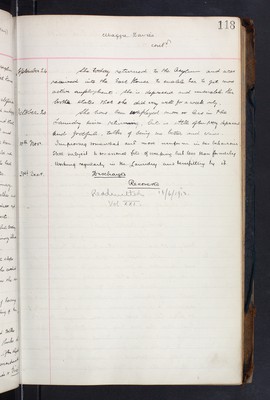 113
contd
September 24
She today returned to the Asylum and was
received into the East House to enable her to get more
active employment. She is depressed and miserable the
mother states that she did very well for a week only.
October 20
She has been employed more or less in the
Laundry since returning, but is still often very depressed
and
10th Novr.
Improving somewhat and more uniform in her behaviour
Still subject to occasional fits of weeping but less than formerly
Working regularly in the Laundry and benefitting by it
Discharged
Recovered
Readmitted 19/6/1912
Vol XXI.